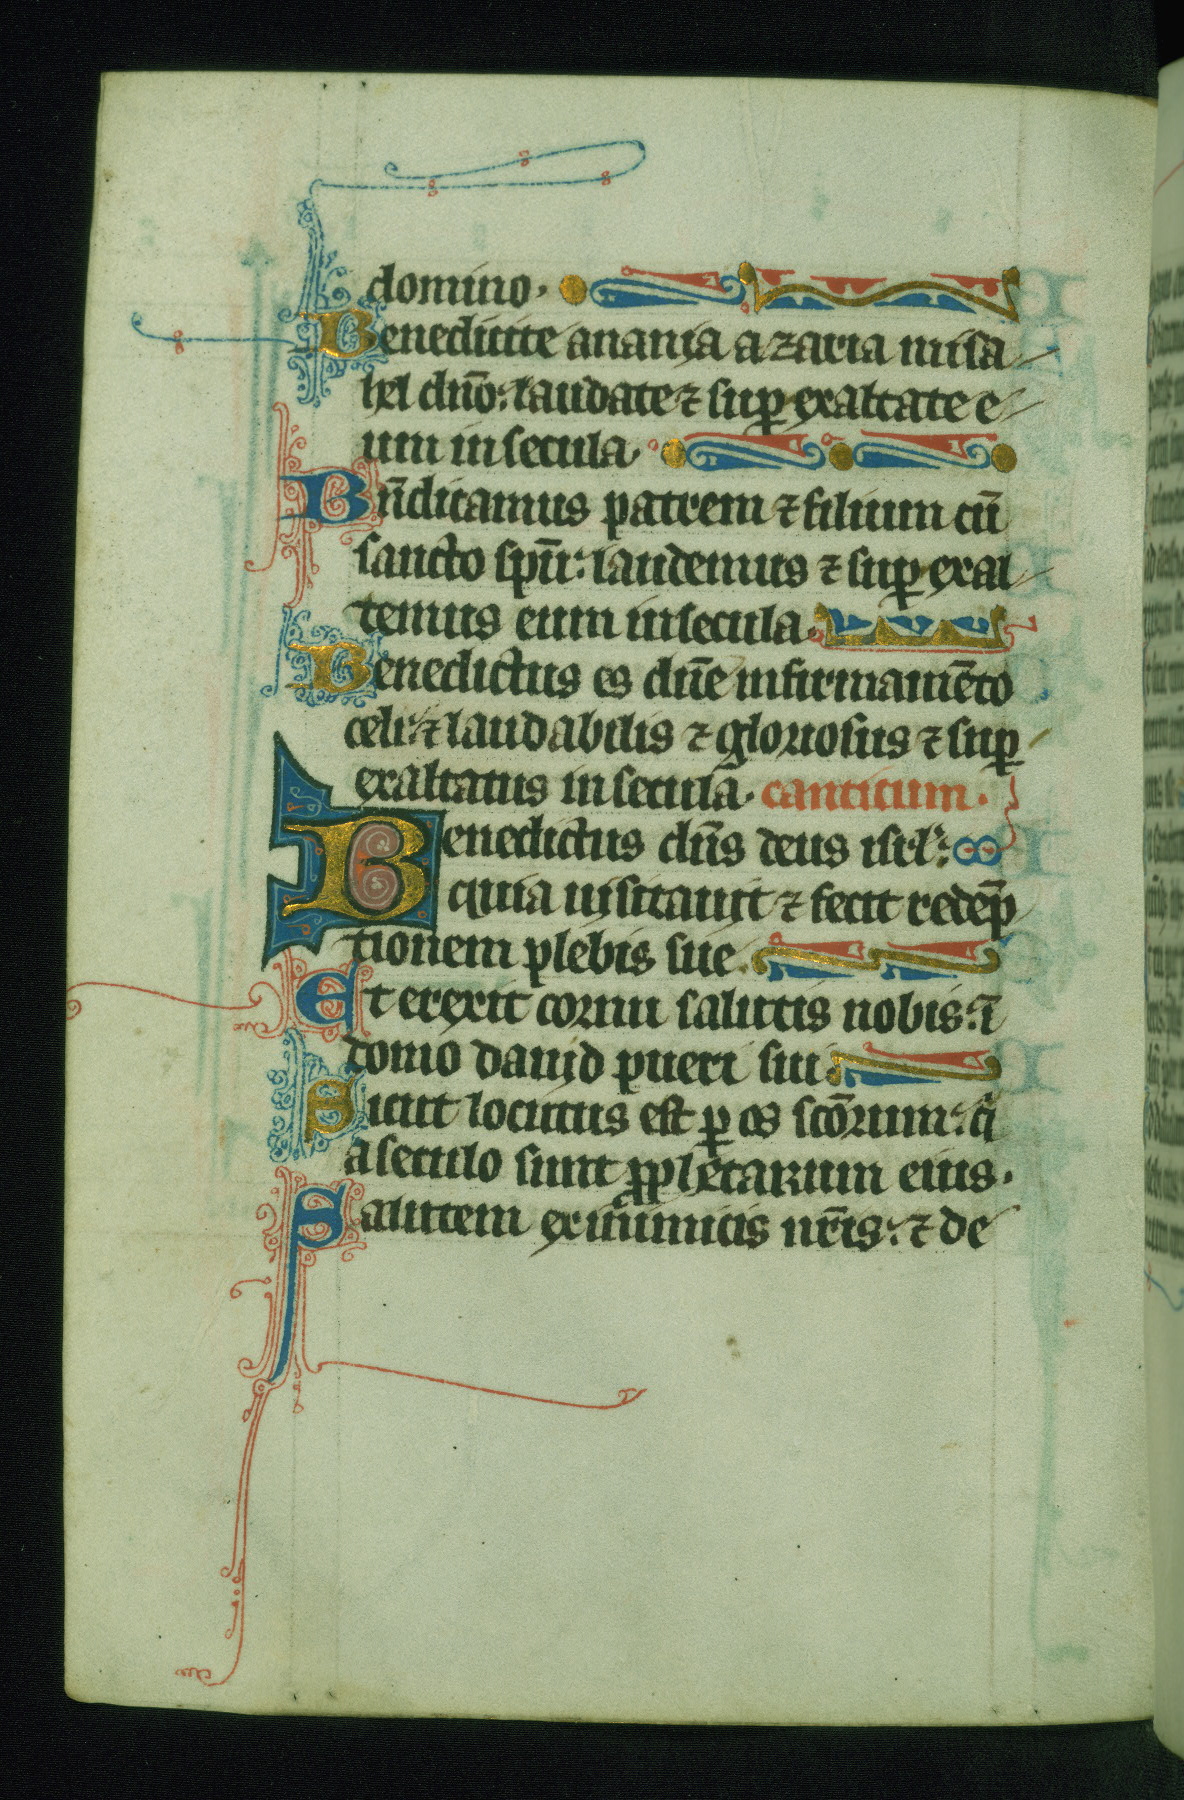 domino.
Benedicite anania azaria misa
hel dn̄o: laudate ⁊ suꝑ exaltate e
um in secula.
Bn̄dicamus patrem ⁊ filium cū
sancto spū: laudemus ⁊ suꝑ exal
temus eum in secula.
Benedictus es dn̄e in firmamēto
celi: ⁊ laudabilis ⁊ gloriosus ⁊ suꝑ
exaltatus in secula. canticum.
Benedictus dn̄s deus isrl:
quia uisitauit ⁊ fecit redēp
tionem plebis sue.
Et erexit cornu salutis nobis: ī
domo dauid pueri sui.
Sicut locutus est ꝑ os scōrum: q̄
a seculo sunt ꝓphetarum eius.
Salutem ex inimicis nr̄is: ⁊ de